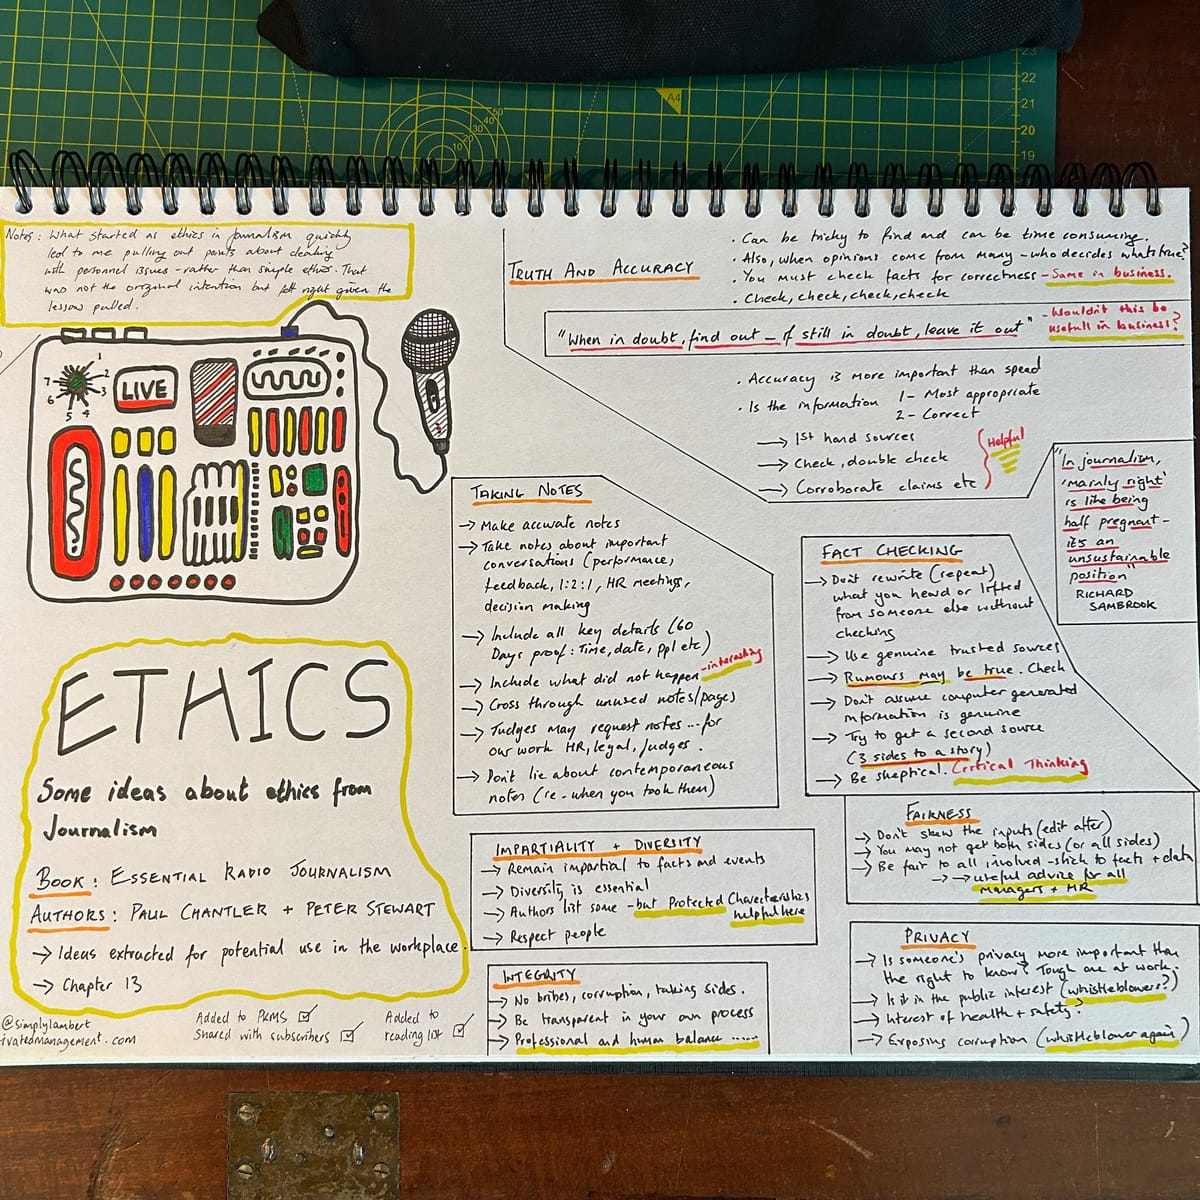 Notes: What started as ethics in Journalism quickly
led to me pulling out points about dealing
with personnel issues - rather than simple ethics. That
was not the original intention but felt right given the
lesson pulled.
1
2
3
4
5
6
7
LIVE
ETHICS
Some ideas about ethics from
Journalism
BOOK: ESSENTIAL RADIO JOURNALISM
AUTHORS: PAUL CHANTLER + PETER STEWART
→ Ideas extracted for potential use in the workplace.
→ Chapter 13
@simplylambert
ivatedmanagement.com
Added to PKMS
Shared with subscribers
Added to
reading list
TRUTH AND ACCURACY
· Can be tricky to find and can be time consuming.
· Also, when opinions come from many - who decides whats true?
· You must check facts for correctness - Same in business.
· Check, check, check, check
"When in doubt, find out - if still in doubt, leave it out"
- Wouldn't this be
usefull in business?
· Accuracy is more important than speed
· Is the information 1 - Most appropriate
2 - Correct
→ 1st hand sources
→ Check, double check
→ Corroborate claims etc
Helpful
"In journalism,
'mainly right'
is like being
half pregnant -
its an
unsustainable
position"
RICHARD
SAMBROOK
TAKING NOTES
→ Make accurate notes
→ Take notes about important
conversations (performance,
feedback, 1:2:1, HR meetings,
decision making
→ Include all key details (60
Days proof: Time, date, ppl etc)
→ Include what did not happen - interesting
→ Cross through unused notes/pages
→ Judges may request notes ... for
our work HR, legal, judges.
→ Don't lie about contemporaneous
notes (re - when you took them)
FACT CHECKING
→ Don't rewrite (repeat)
what you heard or lifted
from someone else without
checking
→ Use genuine trusted sources
→ Rumours may be true. Check
→ Don't assume computer generated
information is genuine
→ Try to get a second source
(3 sides to a story)
→ Be skeptical. Critical Thinking
IMPARTIALITY + DIVERSITY
→ Remain impartial to facts and events
→ Diversity is essential
→ Authors list some - but Protected Characteristics
helpful here
→ Respect people
FAIRNESS
→ Don't skew the inputs (edit after)
→ You may not get both sides (or all sides)
→ Be fair to all involved - stick to facts + data
→ → useful advice for all
managers + HR
INTEGRITY
→ No bribes, corruption, taking sides.
→ Be transparent in your own process
→ Professional and human balance ......
PRIVACY
→ Is someone's privacy more important than
the right to know? Tough one at work.
→ Is it in the public interest (whistleblowers?)
→ Interest of health + safety?
→ Exposing corruption (whistleblower again)
A4
50
40
30
20
10
23
22
21
20
19